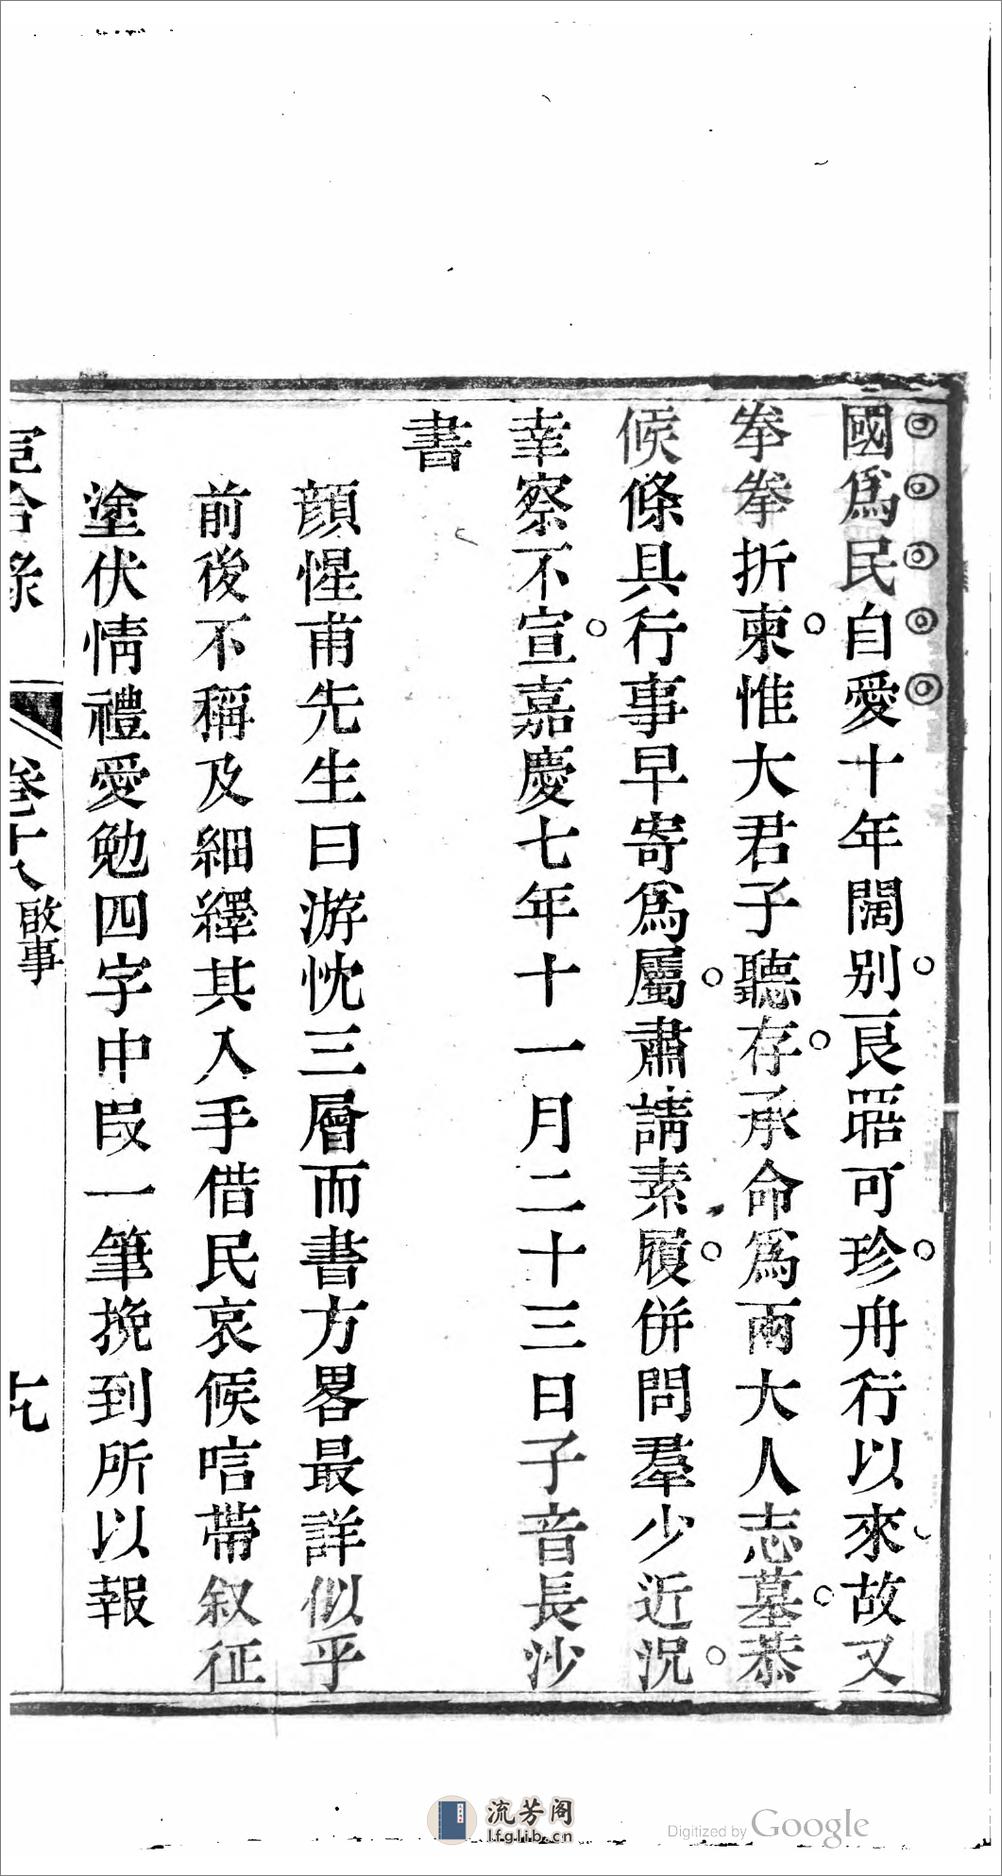 國爲民自愛十年闊别良晤可珍舟行以來故又
拳拳折柬惟大君子聽存承命爲兩大人志墓恭
候條具行事早寄爲屬肅請素履併問羣少近況
幸察不宣嘉慶七年十一月二十三日子音長沙
書
顔惺甫先生曰游忱三層而書方畧最詳似乎
前後不稱及細繹其入手借民哀候唁帶叙征
塗伏情禮愛勉四字中段一筆挽到所以報
卷十八 啟事
流芳阁
lfglib.cn
Digitized by Google